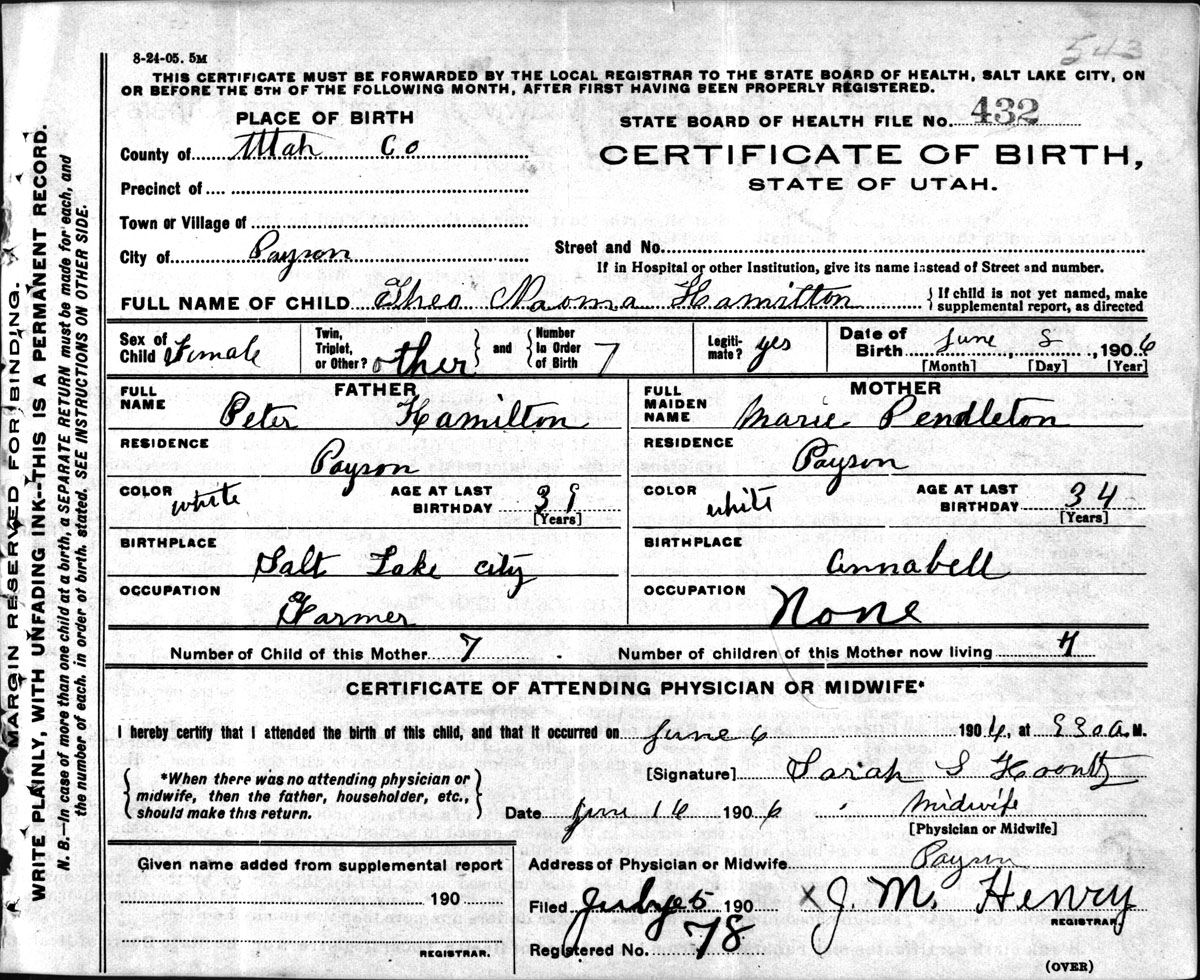 543
8-24-05. 5M
THIS CERTIFICATE MUST BE FORWARDED BY THE LOCAL REGISTRAR TO THE STATE BOARD OF HEALTH, SALT LAKE CITY, ON
OR BEFORE THE 5TH OF THE FOLLOWING MONTH, AFTER FIRST HAVING BEEN PROPERLY REGISTERED.
PLACE OF BIRTH
STATE BOARD OF HEALTH FILE No. 432
County of Utah Co
CERTIFICATE OF BIRTH,
STATE OF UTAH.
Precinct of
Town or Village of
City of Payson
Street and No.
If in Hospital or other Institution, give its name instead of Street and number.
FULL NAME OF CHILD Theo Naoma Hamilton { If child is not yet named, make supplemental report, as directed
Sex of Child Female Twin, Triplet, or Other? other } and { Number In Order of Birth 7 Legiti-mate? yes Date of Birth June, 8, 1906
[Month] [Day] [Year]
FATHER
MOTHER
FULL NAME Peter Hamilton
FULL MAIDEN NAME Marie Pendleton
RESIDENCE Payson
RESIDENCE Payson
COLOR white AGE AT LAST BIRTHDAY 39 [Years]
COLOR white AGE AT LAST BIRTHDAY 34 [Years]
BIRTHPLACE Salt Lake city
BIRTHPLACE Annabell
OCCUPATION Farmer
OCCUPATION None
Number of Child of this Mother 7
Number of children of this Mother now living
CERTIFICATE OF ATTENDING PHYSICIAN OR MIDWIFE*
I hereby certify that I attended the birth of this child, and that it occurred on June 6 1906, at 330 A.M.
{ *When there was no attending physician or midwife, then the father, householder, etc., should make this return. }
[Signature] Sarah S
Date June 16 1906 midwife
[Physician or Midwife]
Given name added from supplemental report
190
REGISTRAR.
Address of Physician or Midwife Payson
Filed July 5 190 X J. M. Henry
REGISTRAR
Registered No. 78
(OVER)
MARGIN RESERVED FOR BINDING.
WRITE PLAINLY, WITH UNFADING INK--THIS IS A PERMANENT RECORD.
N. B.—In case of more than one child at a birth, a SEPARATE RETURN must be made for each, and
the number of each, in order of birth, stated. SEE INSTRUCTIONS ON OTHER SIDE.